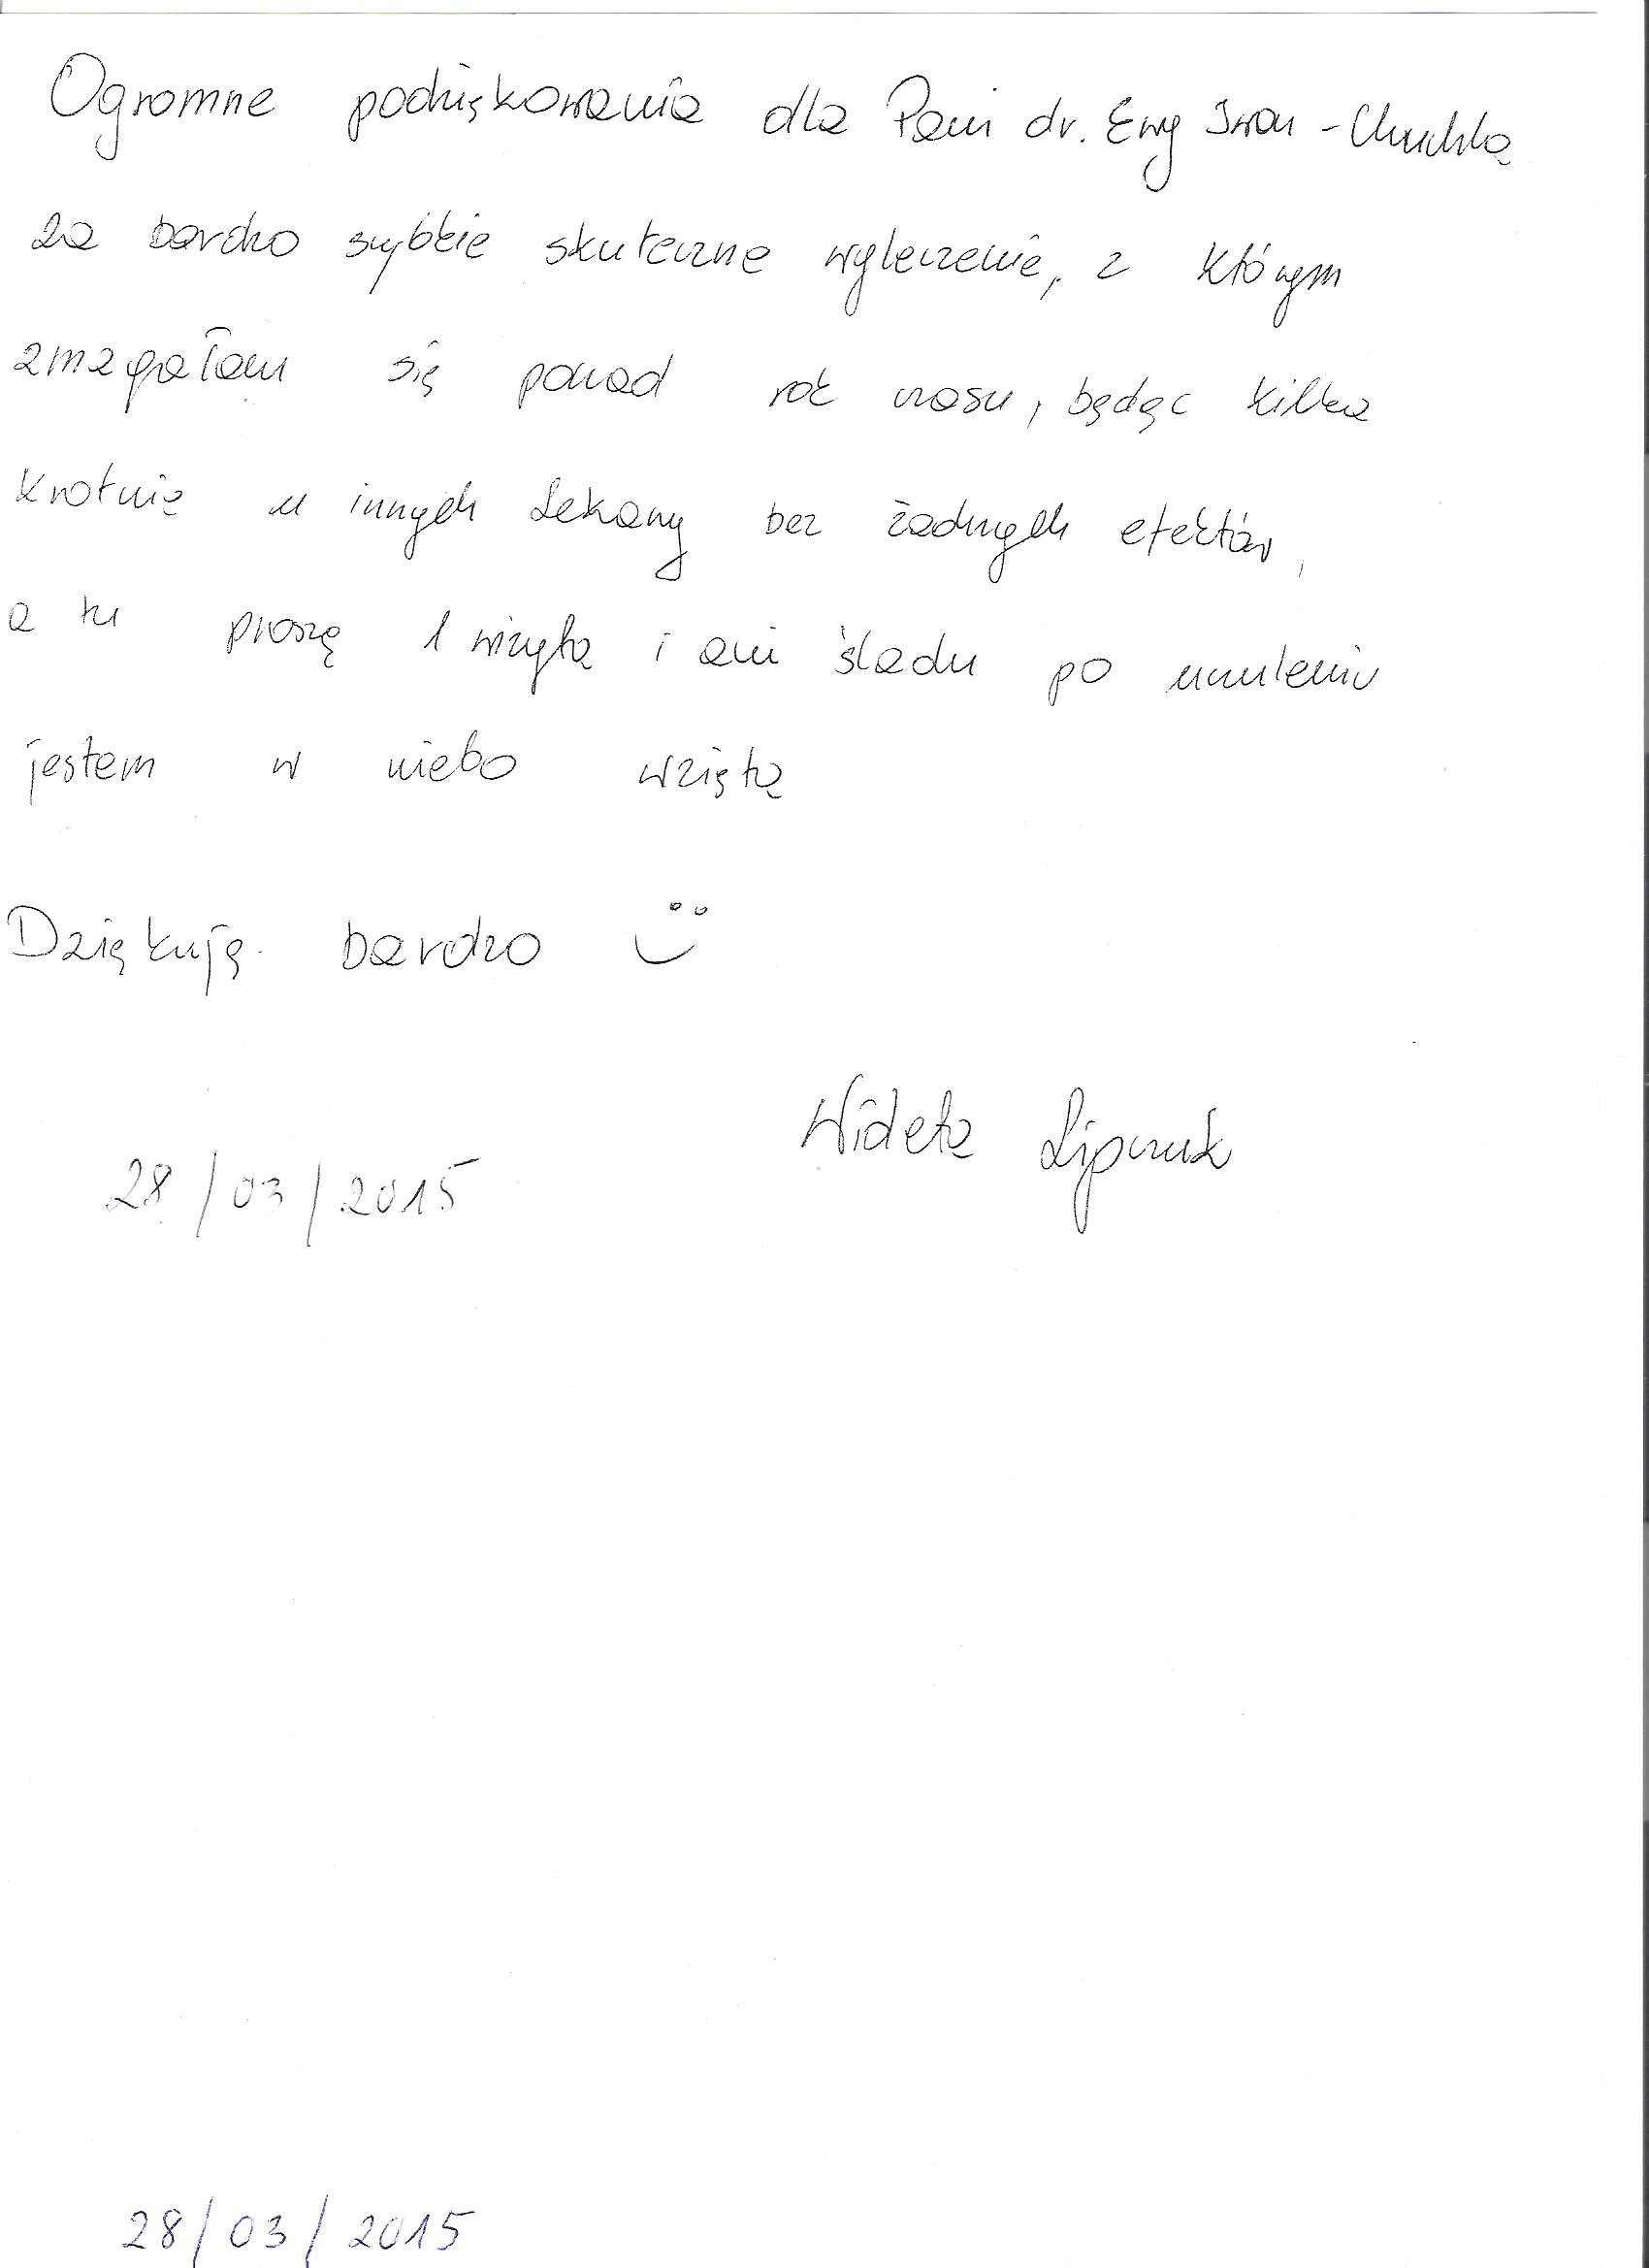 Ogromne podziękowania dla Pani dr. Ewy Iwan - Chuchla
za bardzo szybkie skuteczne wyleczenie, z którym
zmagałam się ponad rok czasu, będąc kilka
krotnie u innych lekarzy bez żadnych efektów,
a tu proszę 1 wizyta i ani śladu po uczuleniu
jestem w niebo wzięta
Dziękuję bardzo
Wioleta Lipczuk
28/03/2015
28/03/2015